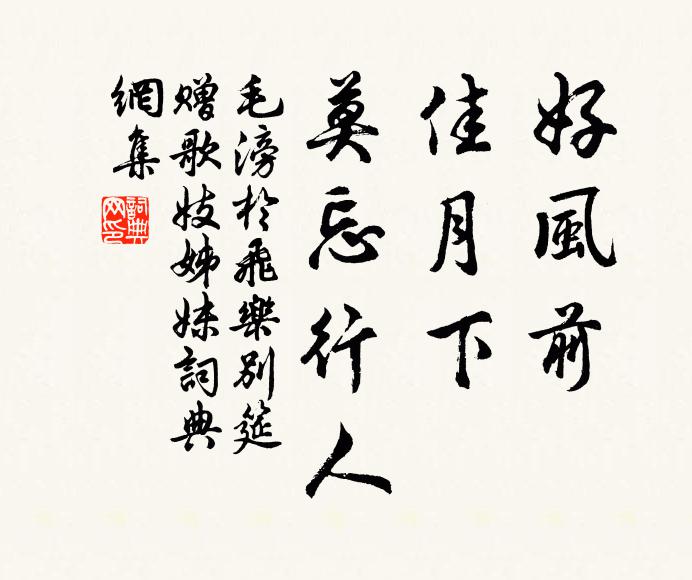 好風前
佳月下
莫忘行人
毛滂於飛樂別筵
贈歌妓姊妹詞典
網集
詞典
网印